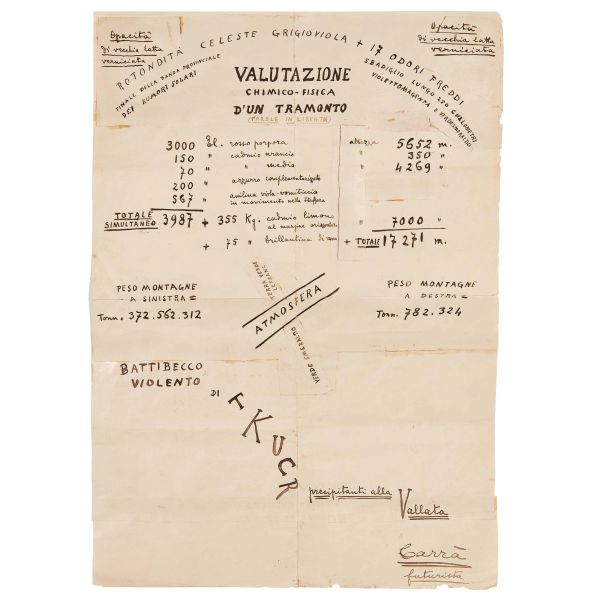 Opacità
di vecchia latta
verniciata
ROTONDITÀ CELESTE GRIGIOVIOLA + 17 ODORI FREDDI
Opacità
di vecchia latta
verniciata
FINALE DELLA BANDA PROVINCIALE
DEI RUMORI SOLARI
SBADIGLIO LUNGO 250 CHILOMETRI
VIOLETTOMAGENTA E VERDESMERALDO
VALUTAZIONE
CHIMICO-FISICA
D'UN TRAMONTO
(PAROLE IN LIBERTÀ)
3000 El. rosso porpora altezza 5652 m.
150 " cadmio arancio " 350 "
70 " " medio " 4269 "
200 " azzurro complementarizzato
567 " anilina viola-vomiticcia
in movimento nelle
TOTALE
SIMULTANEO 3987 + 355 Kg. cadmio limone 7000 "
al margine
+ 75 " brillantina di + TOTALE 17271 m.
PESO MONTAGNE
A SINISTRA =
Tonn. 372.562.312
TERRA VERDE
ATMOSFERA
VERDE SMERALDO
PESO MONTAGNE
A DESTRA =
Tonn. 782.324
BATTIBECCO
VIOLENTO
DI
T K U C R
precipitanti alla
Vallata
Carrà
futurista